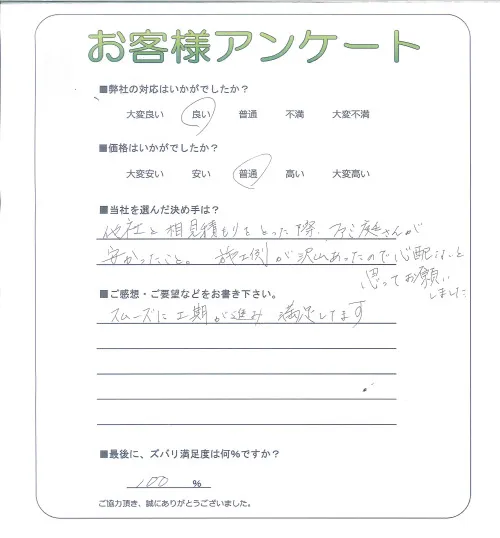 お客様アンケート
■弊社の対応はいかがでしたか？
大変良い 良い 普通 不満 大変不満
■価格はいかがでしたか？
大変安い 安い 普通 高い 大変高い
■当社を選んだ決め手は？
他社と相見積もりをとった際、ファミ庭さんが
安かったこと。施工例が沢山あったので心配ないと
思ってお願い
しました
■ご感想・ご要望などをお書き下さい。
スムーズに工期が進み 満足してます
■最後に、ズバリ満足度は何％ですか？
100 ％
ご協力頂き、誠にありがとうございました。